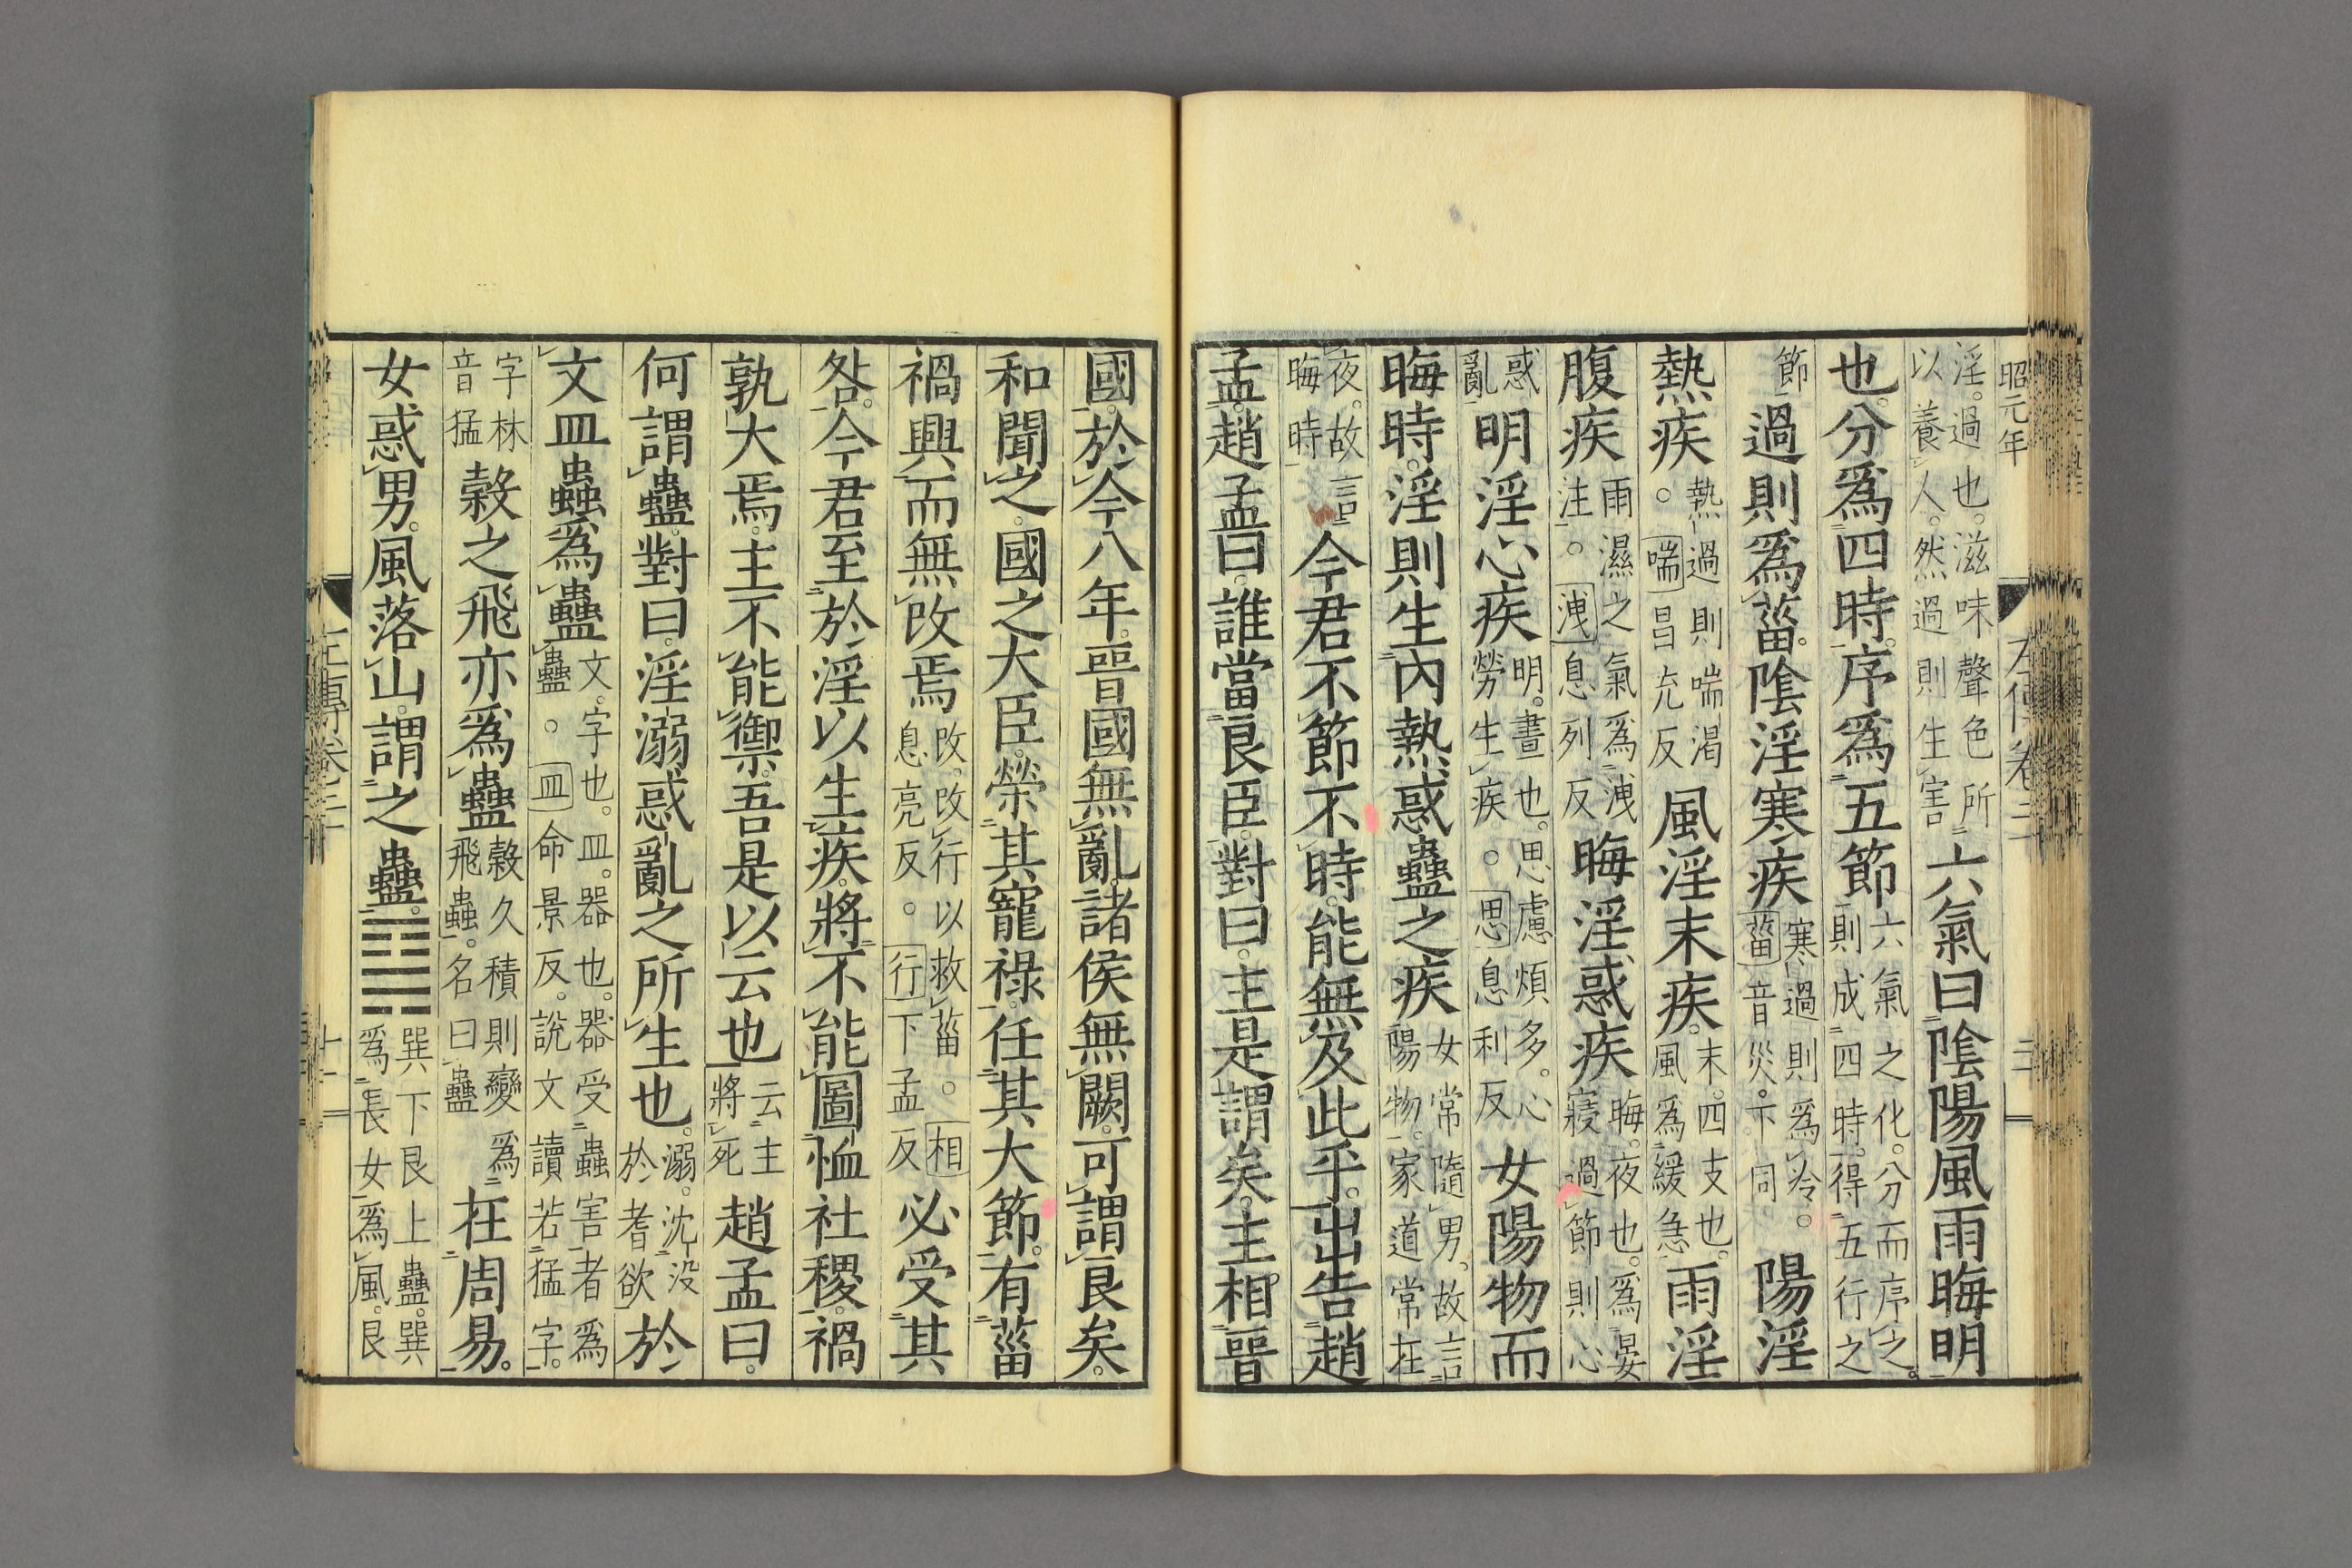 昭元年
左傳卷二
淫。過也。滋味聲色所
以養人。然過則生害
六氣曰陰陽風雨晦明
也。分爲四時。序爲五節
六氣之化。分而序之。
則成四時。得五行之
節
過則爲菑。陰淫寒疾
寒過則爲冷。
菑音災。下同
陽淫
熱疾
熱過則喘渴
。喘昌兖反
風淫末疾。
末。四支也。
風爲緩急
雨淫
腹疾
雨濕之氣爲洩
注。。洩息列反
晦淫惑疾
晦。夜也。爲晏
寢過節則心
惑
亂
明淫心疾
明。晝也。思慮煩多。心
勞生疾。。思息利反
女陽物而
晦時。淫則生內熱惑蠱之疾
女常隨男。故言
陽物。家道常在
夜。故言
晦時
今君不節不時。能無及此乎。出告趙
孟。趙孟曰。誰當良臣。對曰。主是謂矣。主相晉
國。於今八年。晉國無亂。諸侯無闕。可謂良矣。
和聞之。國之大臣。榮其寵祿。任其大節。有菑
禍興而無改焉
改。改行以救菑。相
息亮反。。行下孟反
必受其
咎。今君至於淫以生疾。將不能圖恤社稷。禍
孰大焉。主不能禦。吾是以云也
云主
將死
趙孟曰。
何謂蠱。對曰。淫溺惑亂之所生也。
溺。沈没
於耆欲
於
文皿蟲爲蠱
文。字也。皿。器也。器受蟲害者爲
蠱。。皿命景反。說文讀若猛字。
字林
音猛
穀之飛亦爲蠱
穀久積則變爲
飛蟲。名曰蠱
在周易。
女惑男。風落山。謂之蠱。䷑
巽下艮上蠱。巽
爲長女爲風。艮